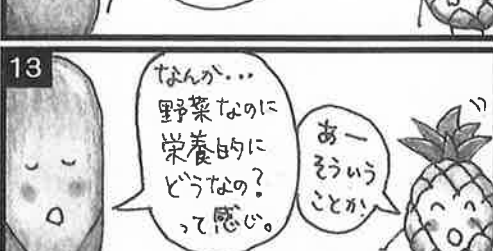 13
なんか...
野菜なのに
栄養的に
どうなの?
って感じ。
あー
そういう
ことか、